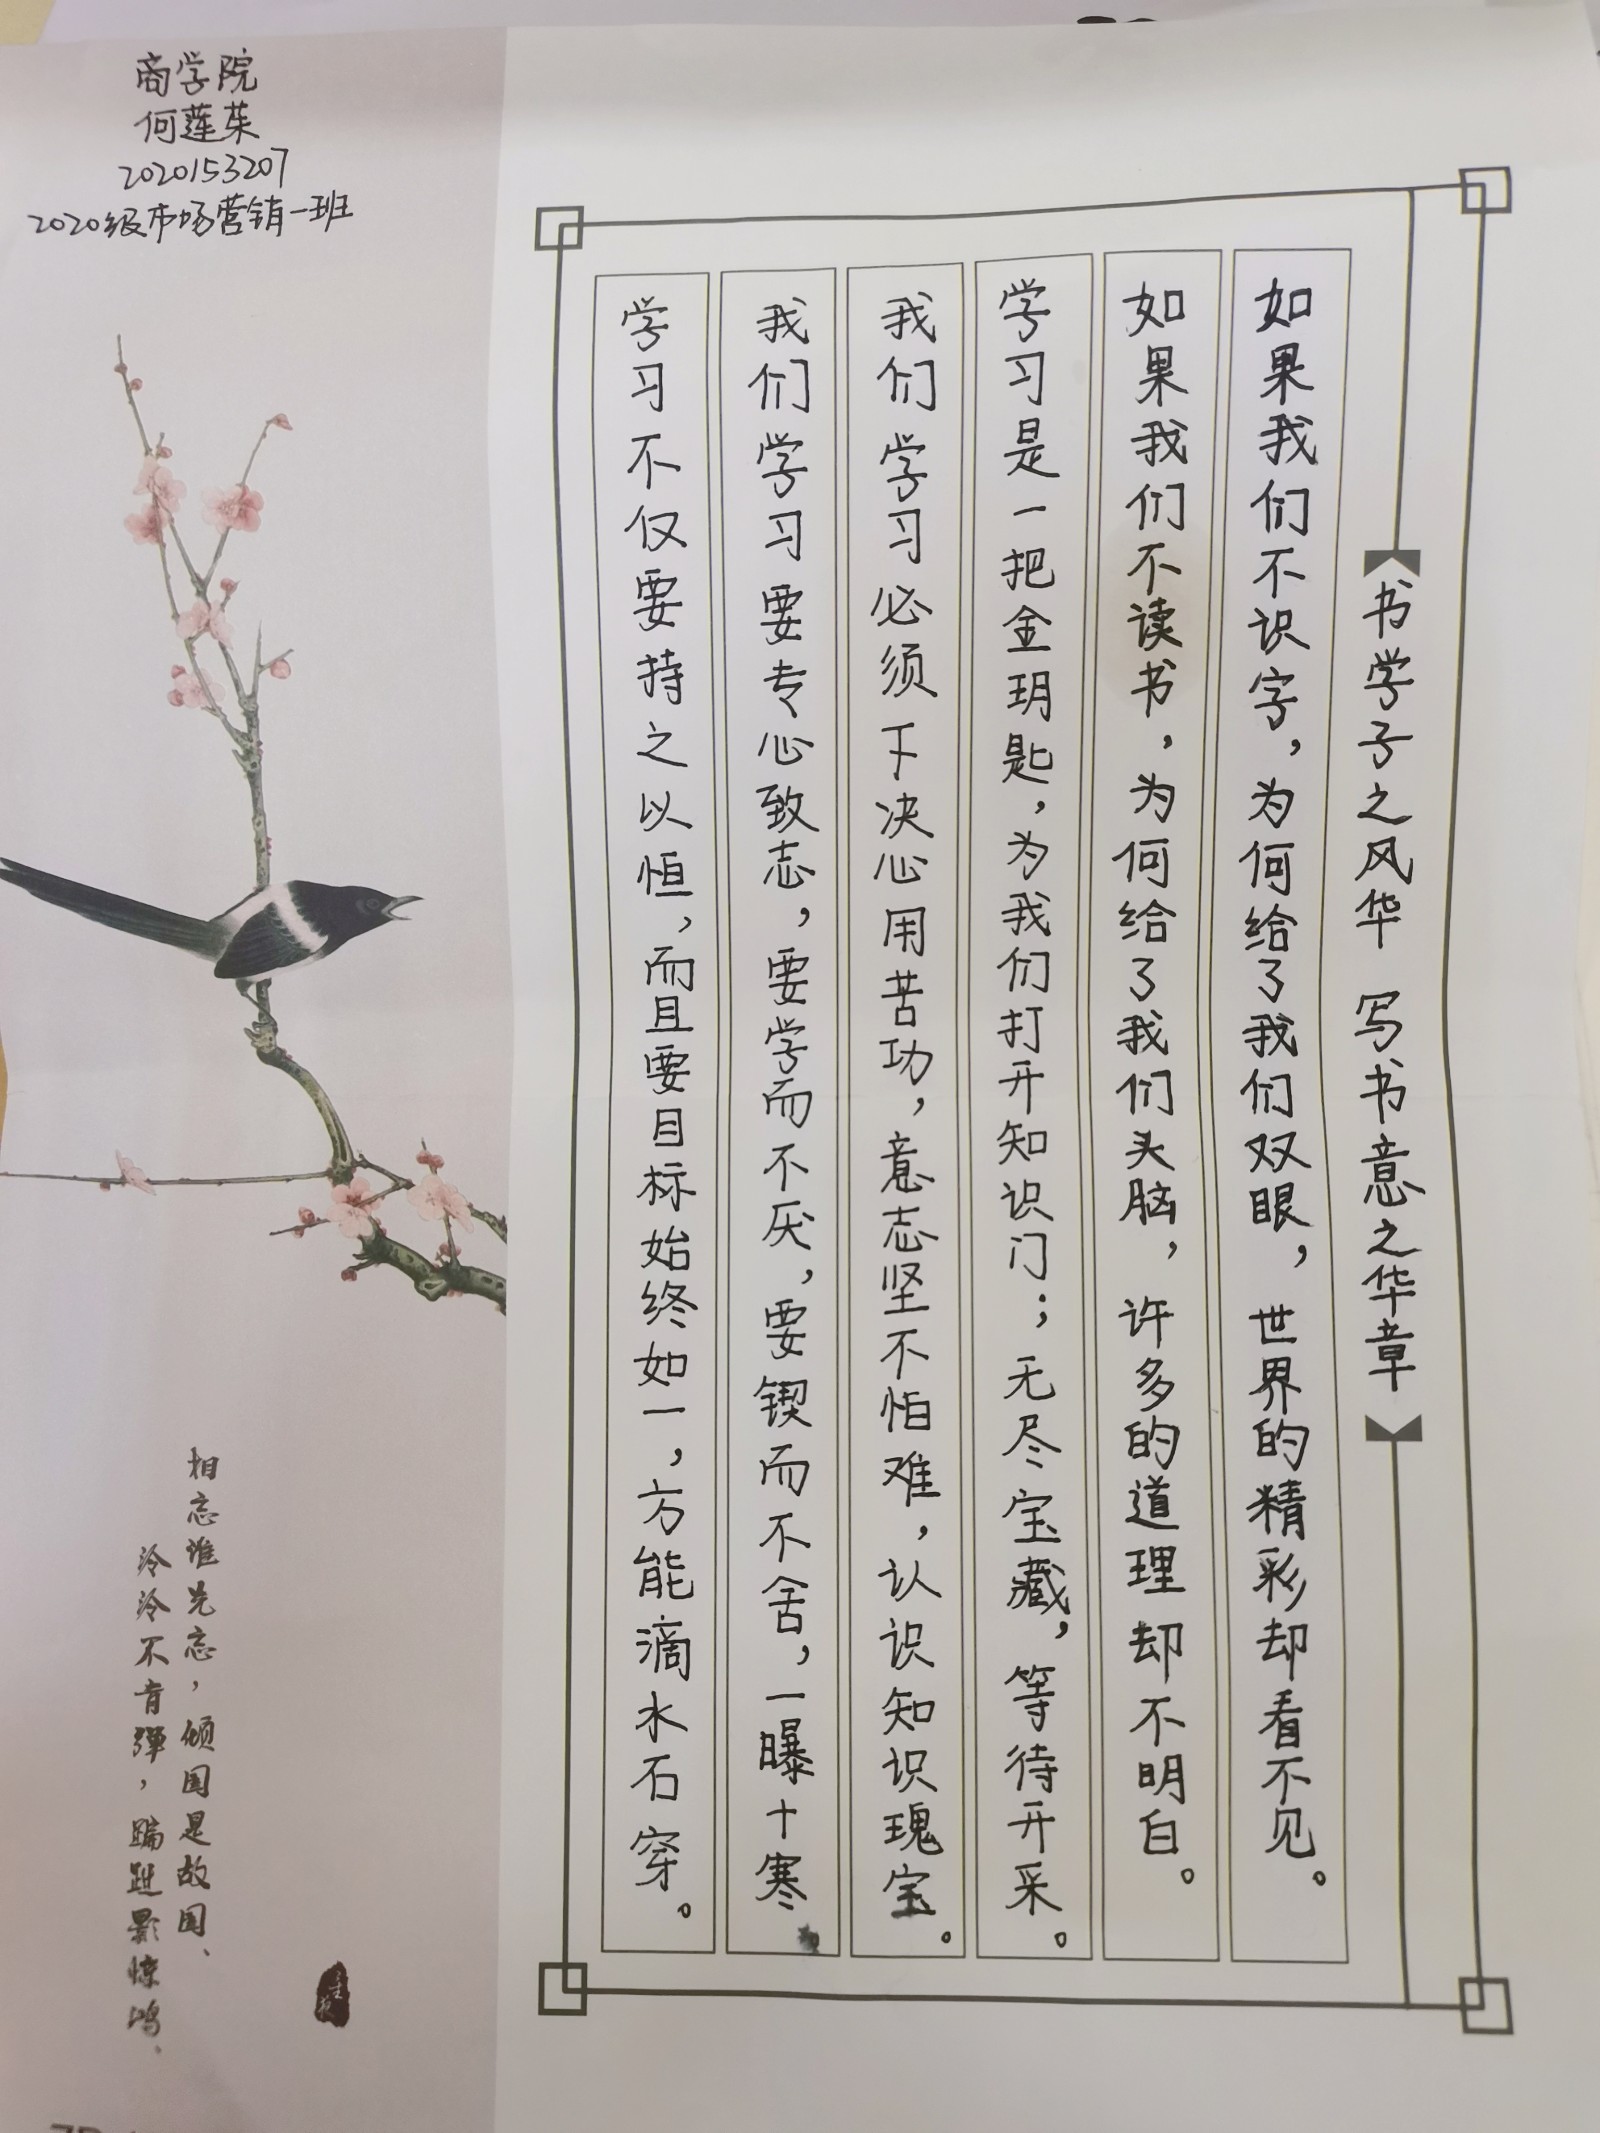 商学院
何莲茱
2020153207
2020级市场营销一班
书学子之风华 写书意之华章
如果我们不识字，为何给了我们双眼，世界的精彩却看不见。
如果我们不读书，为何给了我们头脑，许多的道理却不明白。
学习是一把金玥匙，为我们打开知识门；无尽宝藏，等待开采。
我们学习必须下决心用苦功，意志坚不怕难，认识知识瑰宝。
我们学习要专心致志，要学而不厌，要锲而不舍，一曝十寒
学习不仅要持之以恒，而且要目标始终如一，方能滴水石穿。
相忘谁先忘，倾国是故国、
泠泠不肯弹，蹁跹影惊鸿、